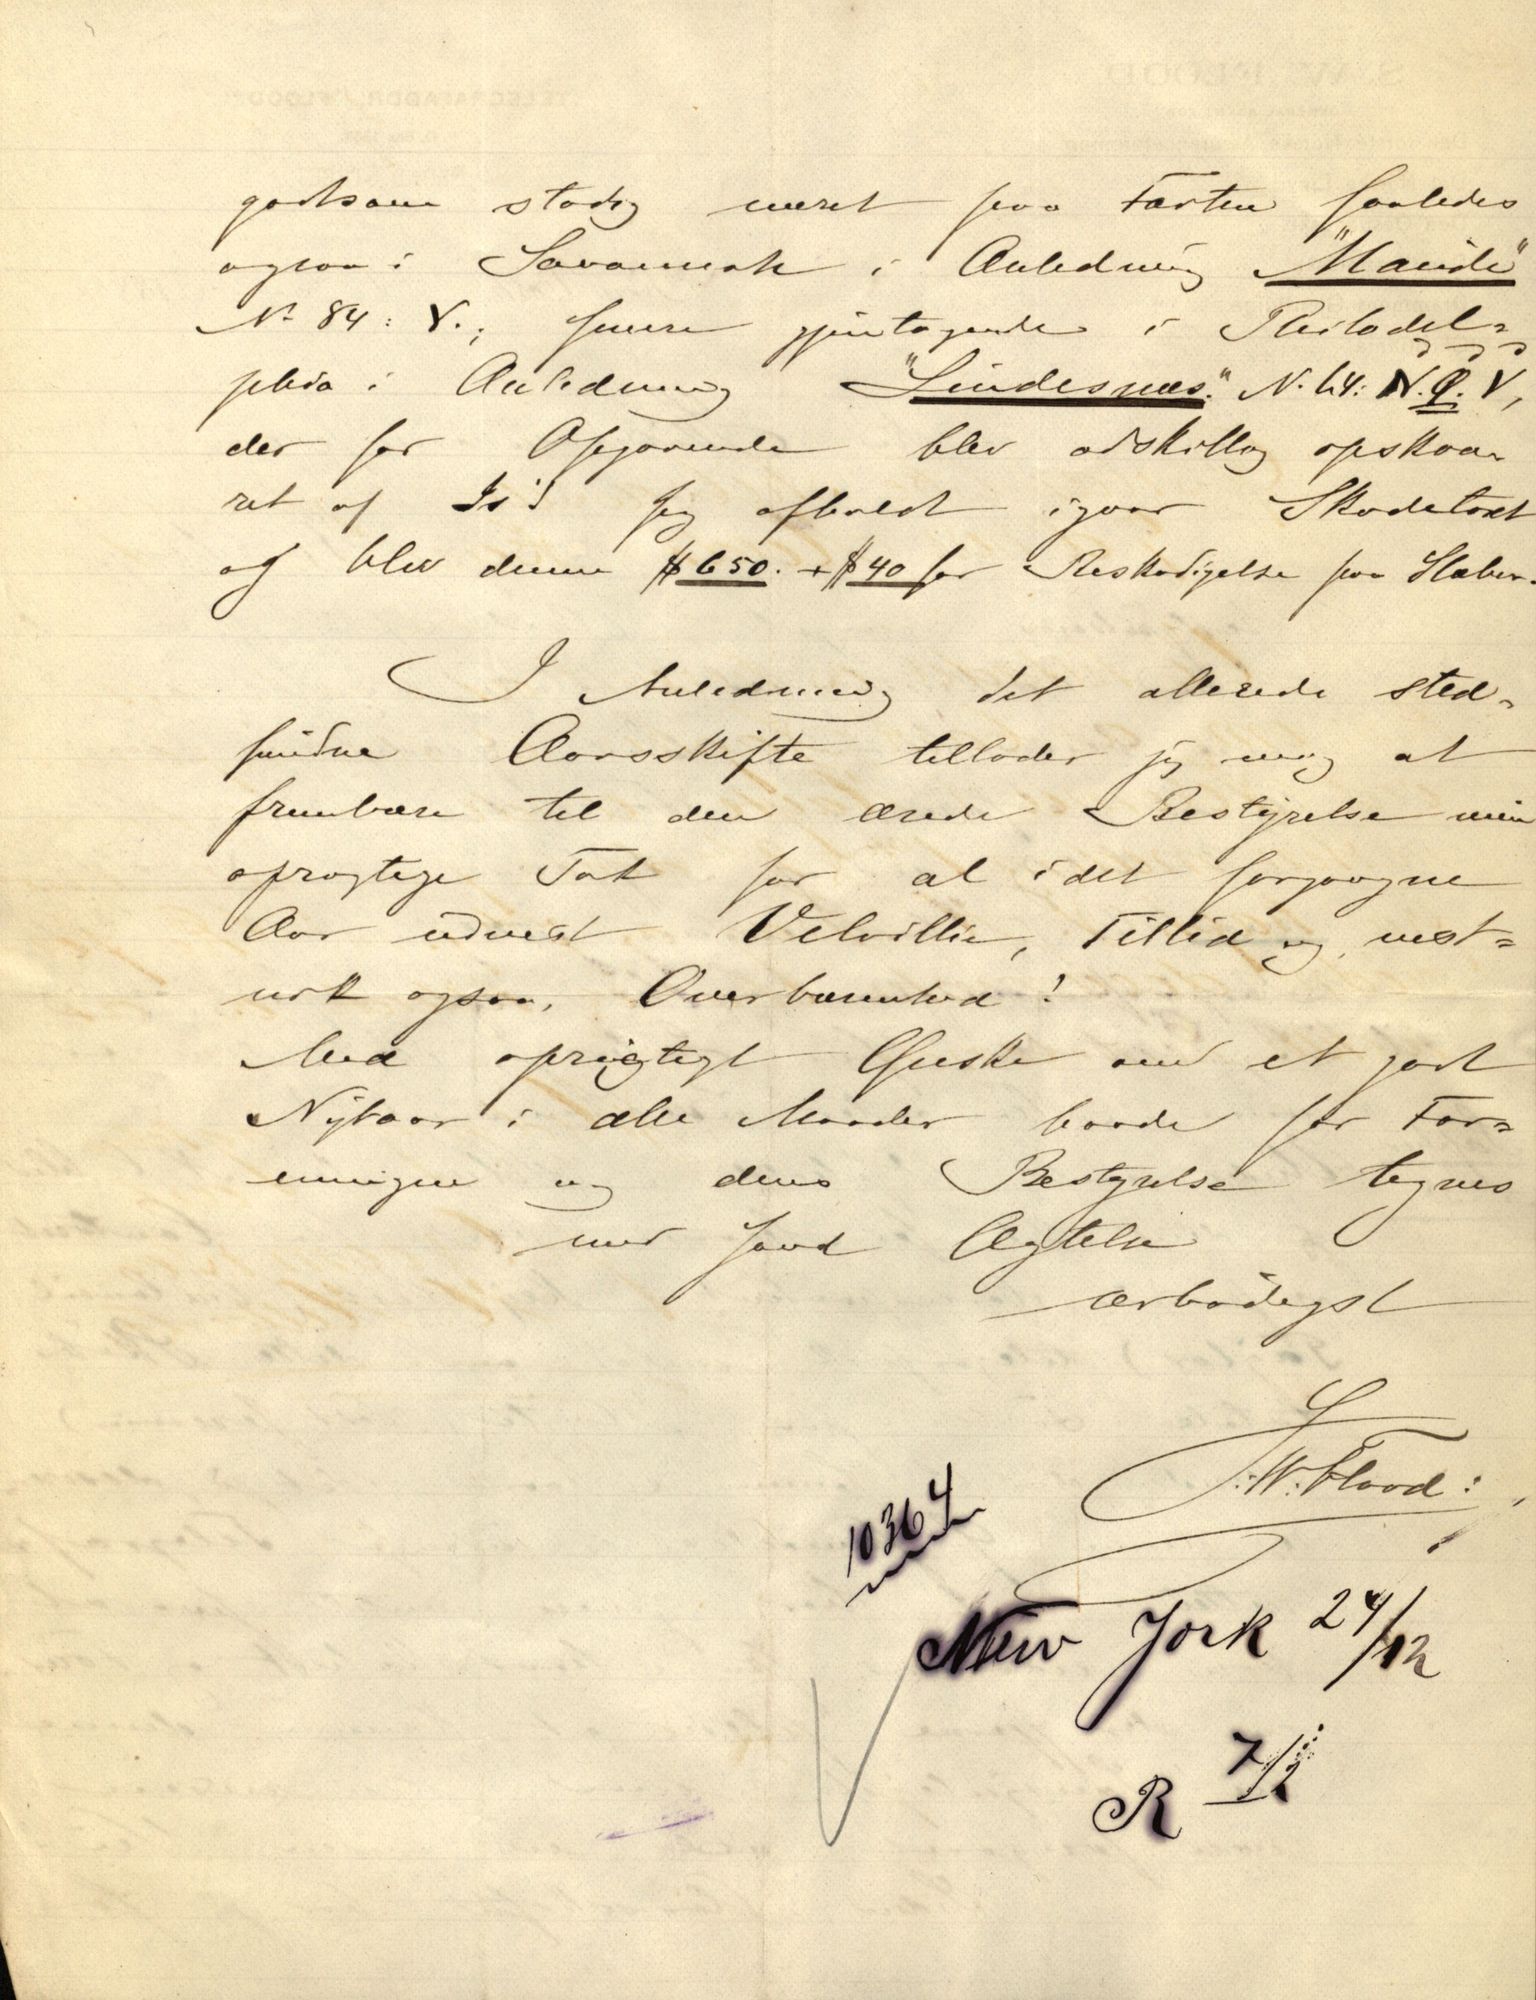 godtsom stadig været paa Farten saaledes
ogsaa i Savannah i Anledning "Maude"
No 84: V.; senere gjentagende i Philadel=
phia i Anledning "Lindesnæs." N. 64: N.Q.V,
der for Afgaaende blev adskillig opskaa-
ret af Is! Jeg afholdt igaar Skadetaxt
og blev denne $650. + $40 for Beskadigelse paa
I Anledning det allerede sted-
fundne Aarsskifte tillader jeg mig at
frembære til den ærede Bestyrelse min
oprigtige Tak for al i det forgangne
Aar udvist Velvillie, Tillid og, mest-
nok ogsaa, Overbærenhed!
Med oprigtigt Ønske om et godt
Nytaar i alle Maader baade for For=
eningen og dens Bestyrelse tegnes
med sand Agtelse
ærbødigst
S.W. Flood:
10364
New York 24/12
R 7/1